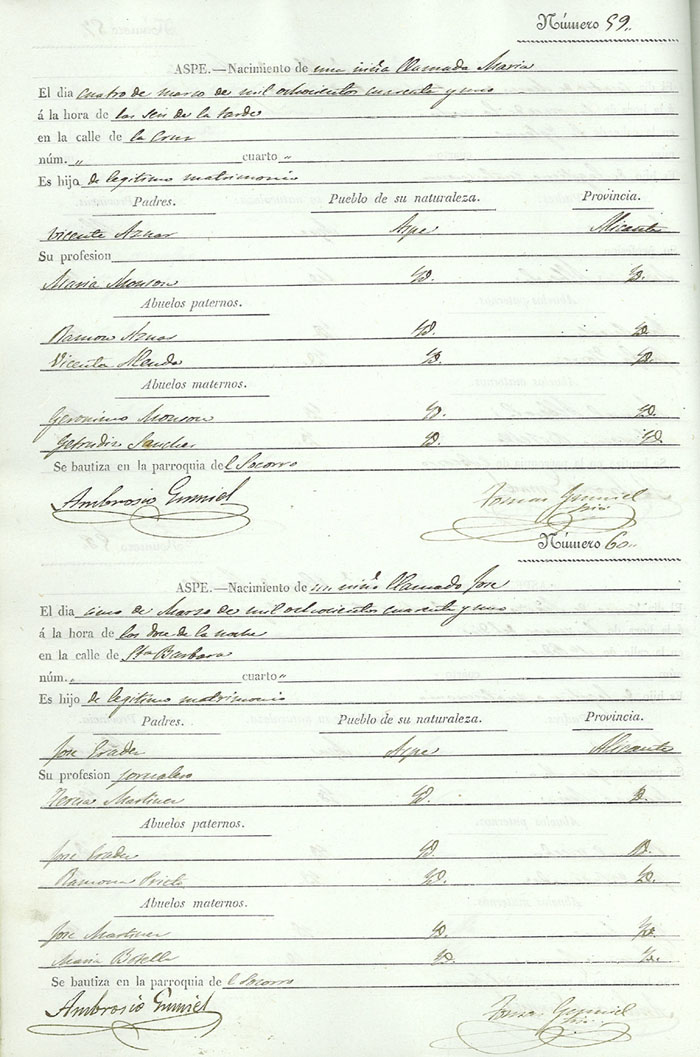 Número 59..
ASPE.—Nacimiento de una niña llamada Maria
El dia cuatro de marzo de mil ochocientos cuarenta y uno
á la hora de las seis de la tarde
en la calle de la Cruz
núm. „ cuarto „
Es hijo de legitimo matrimonio
Padres. Pueblo de su naturaleza. Provincia.
Vicente Aznar Aspe Alicante
Su profesion
Maria Monson Yd. Yd.
Abuelos paternos.
Ramon Aznar Yd. Yd.
Vicenta Yd. Yd.
Abuelos maternos.
Geronimo Monson Yd. Yd.
Getrudis Sanchez Yd. Yd.
Se bautiza en la parroquia del Socorro
Ambrosio Tomas
Número 60..
ASPE.—Nacimiento de un niño llamado Jose
El dia cinco de Marzo de mil ochocientos cuarenta y uno
á la hora de las doce de la noche
en la calle de Sta Barbara
núm. „ cuarto „
Es hijo de legitimo matrimonio
Padres. Pueblo de su naturaleza. Provincia.
Jose Aspe Alicante
Su profesion jornalero
Martinez Yd. Yd.
Abuelos paternos.
Jose Yd. Yd.
Ramona Prieto Yd. Yd.
Abuelos maternos.
Jose Martinez Yd. Yd.
Maria Botella Yd. Yd.
Se bautiza en la parroquia del Socorro
Ambrosio Tomas